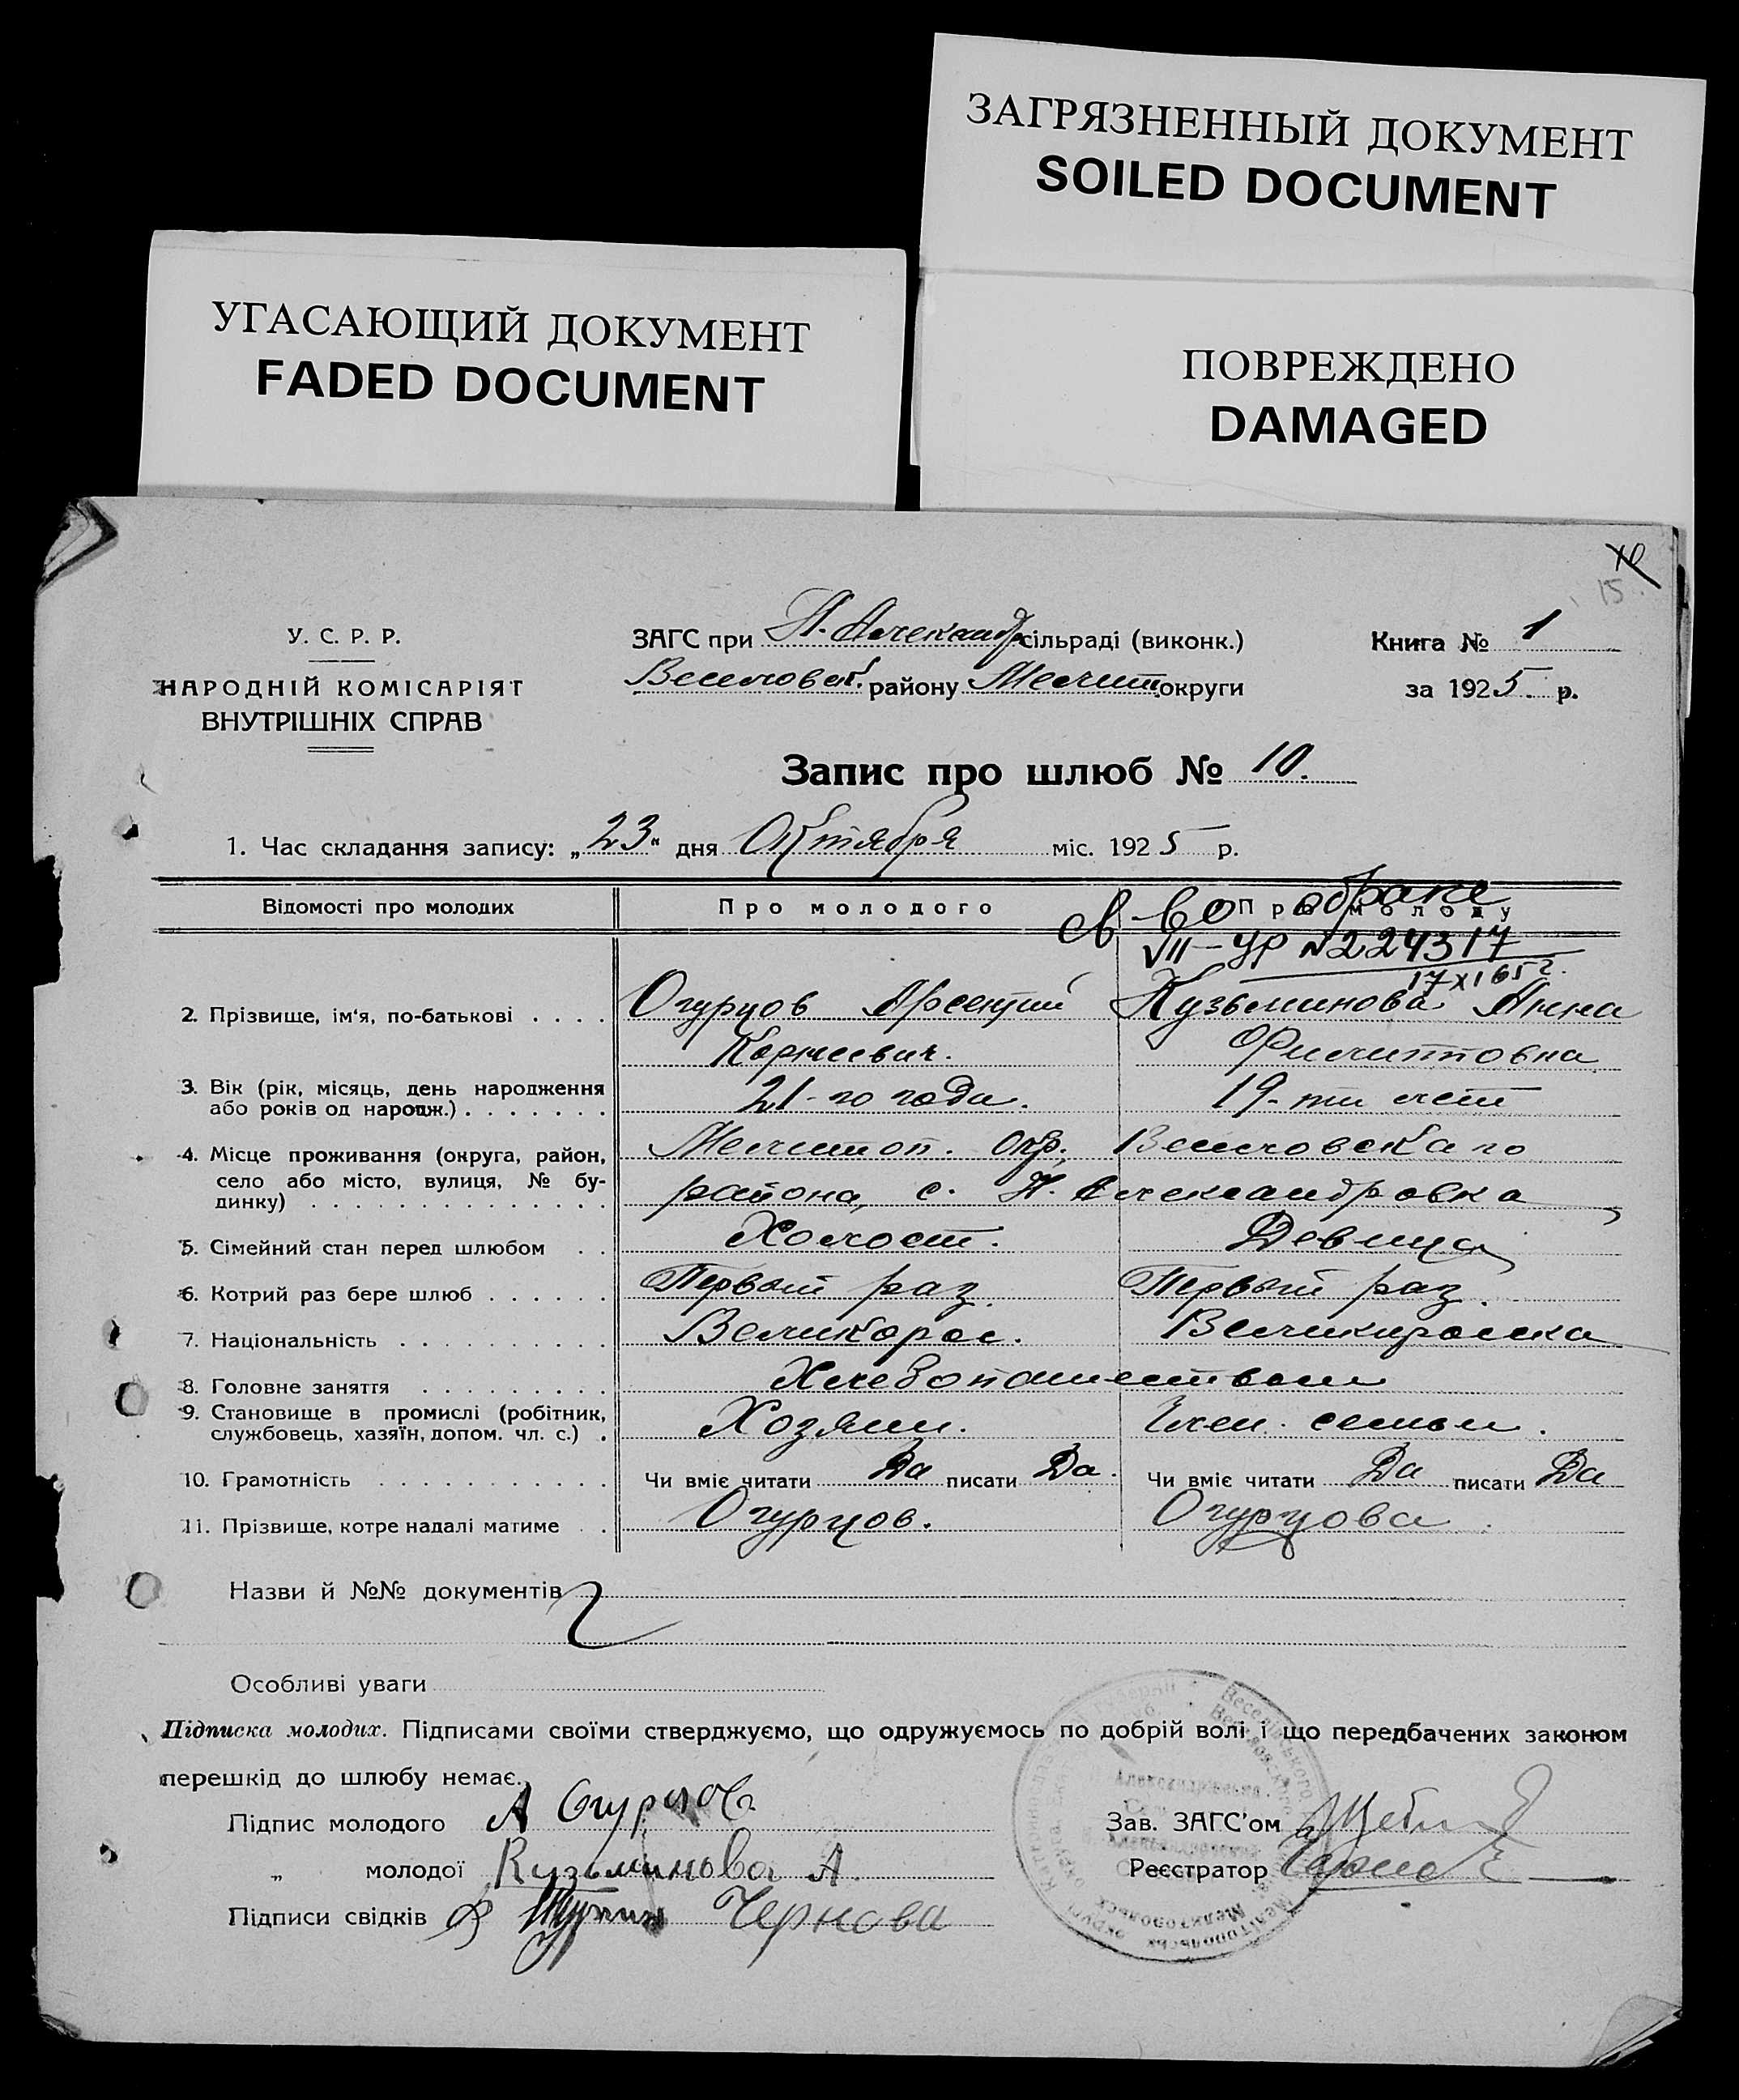 ЗАГРЯЗНЕННЫЙ ДОКУМЕНТ
SOILED DOCUMENT
УГАСАЮЩИЙ ДОКУМЕНТ
FADED DOCUMENT
ПОВРЕЖДЕНО
DAMAGED
15.
У. С. Р. Р.
НАРОДНІЙ КОМІСАРІЯТ
ВНУТРІШНІХ СПРАВ
ЗАГС при Н. Александр. сільраді (виконк.)
Веселовск. району Мелит. округи
Книга № 1
за 1925 р.
Запис про шлюб № 10.
1. Час складання запису: „23" дня Октября міс. 1925 р.
Відомості про молодих Про молодого Про молоду
св-во о браке
VII-УР №224317
17 XI 65 г.
2. Прізвище, ім'я, по-батькові . . . . Огурцов Арсентий Кузьминова Анна
Корнеевич. Филипповна
3. Вік (рік, місяць, день народження
або років од народж.) . . . . . . . 21-го года. 19-ти лет
4. Місце проживання (округа, район,
село або місто, вулиця, № бу-
динку) . . . . . . . . . . . . . .
Мелитоп. окр., Веселовскаго
района, с. Н. Александровка
5. Сімейний стан перед шлюбом . . Холост. Девица
6. Котрий раз бере шлюб . . . . . . Первый раз. Первый раз.
7. Національність . . . . . . . . . . Великорос. Великоросска
8. Головне заняття . . . . . . . . . Хлебопашеством
9. Становище в промислі (робітник,
службовець, хазяїн, допом. чл. с.) . Хозяин. Член. семьи.
10. Грамотність . . . . . . . . . . . Чи вміє читати Да писати Да. Чи вміє читати Да писати Да
11. Прізвище, котре надалі матиме . . Огурцов. Огурцова.
Назви й №№ документів
Особливі уваги
Підписка молодих. Підписами своїми стверджуємо, що одружуємось по добрій волі і що передбачених законом
перешкід до шлюбу немає.
Підпис молодого А Огурцов
„ молодої Кузьминова А.
Підписи свідків Чернова
Зав. ЗАГС'ом
Реєстратор